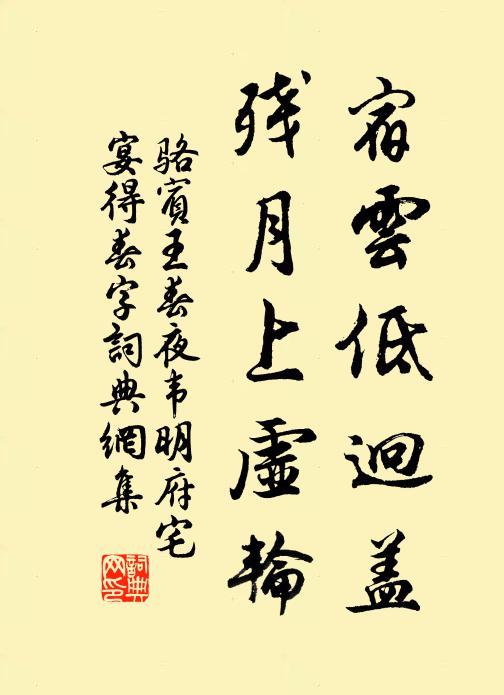 宿雲低迥盖
残月上虛輪
骆賓王春夜韦明府宅
宴得春字詞典網集
詞典網印